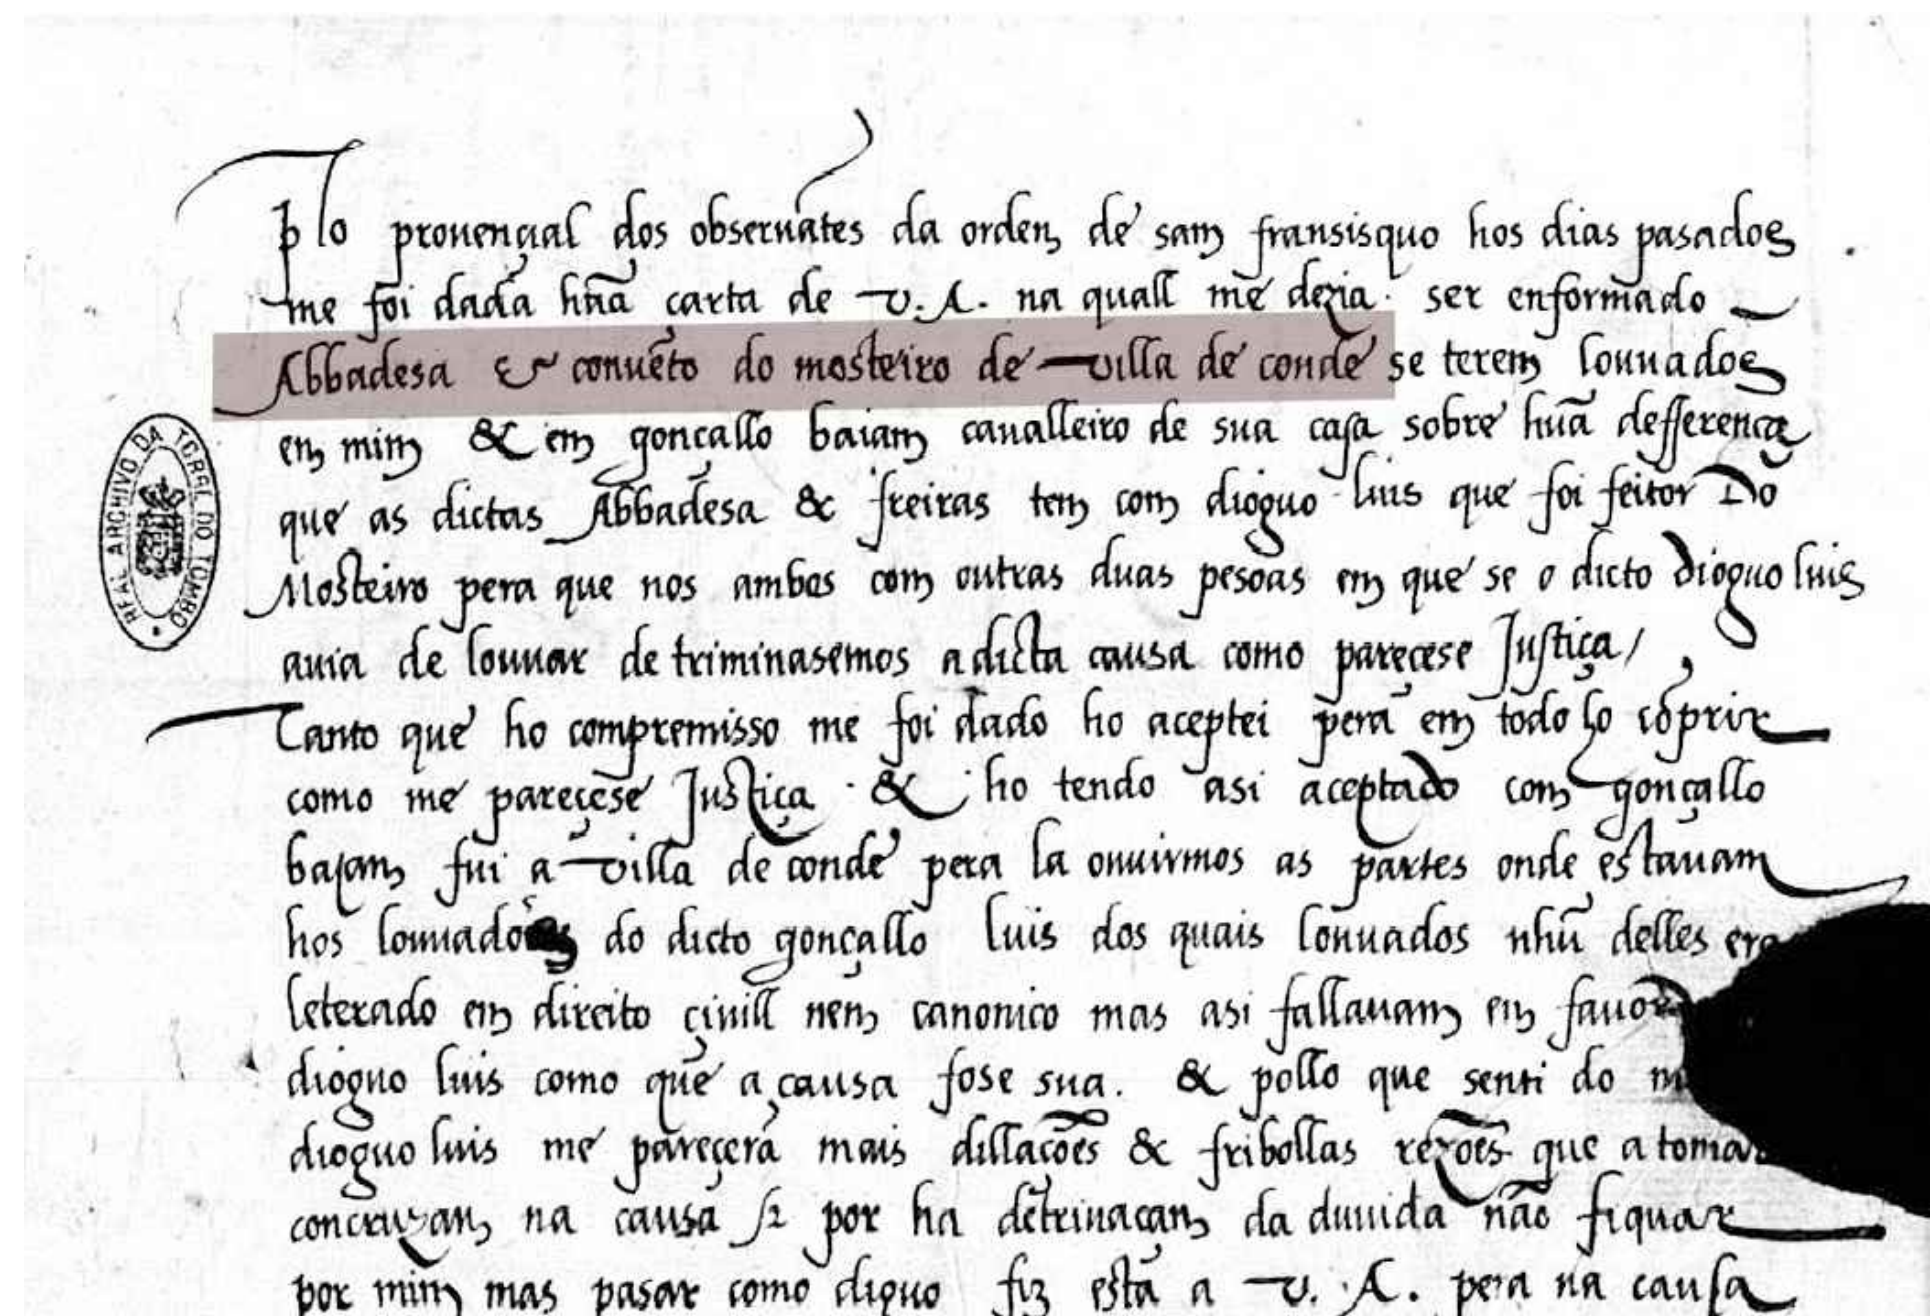 plo prouençial dos obseruãtes da ordem de sam fransisquo hos dias pasados
me foi dada hũa carta de v. A. na quall me dezia ser enformado
Abbadesa & conuẽto do mosteiro de villa de conde se terem louuados
em mim & em gonçallo baiam caualleiro de sua casa sobre hũa defferença
que as dictas Abbadesa & freiras tem com dioguo luis que foi feitor Do
Mosteiro pera que nos ambos com outras duas pesoas em que se o dicto dioguo luis
auia de louuar detriminasemos a dicta causa como pareçese Justiça /
Tanto que ho compremisso me foi dado ho aceptei pera em todo ho cõprir
como me pareçese Justiça · & ho tendo asi aceptado com gonçallo
bajam fui a villa de conde pera la ouuirmos as partes onde estauam
hos do dicto gonçallo luis dos quais louuados nhũ delles era
leterado em direito çiuill nem canonico mas asi fallauam em fauor
dioguo luis como que a causa fose sua. & pollo que senti do
dioguo luis me pareçera mais dillações & fribollas rezões que a tomar
concruzam na causa por ha detrinaçam da duuida não fiquar
por mim mas pasar como diguo fiz esta a v. A. pera na causa
REAL ARCHIVO DA TORRE DO TOMBO